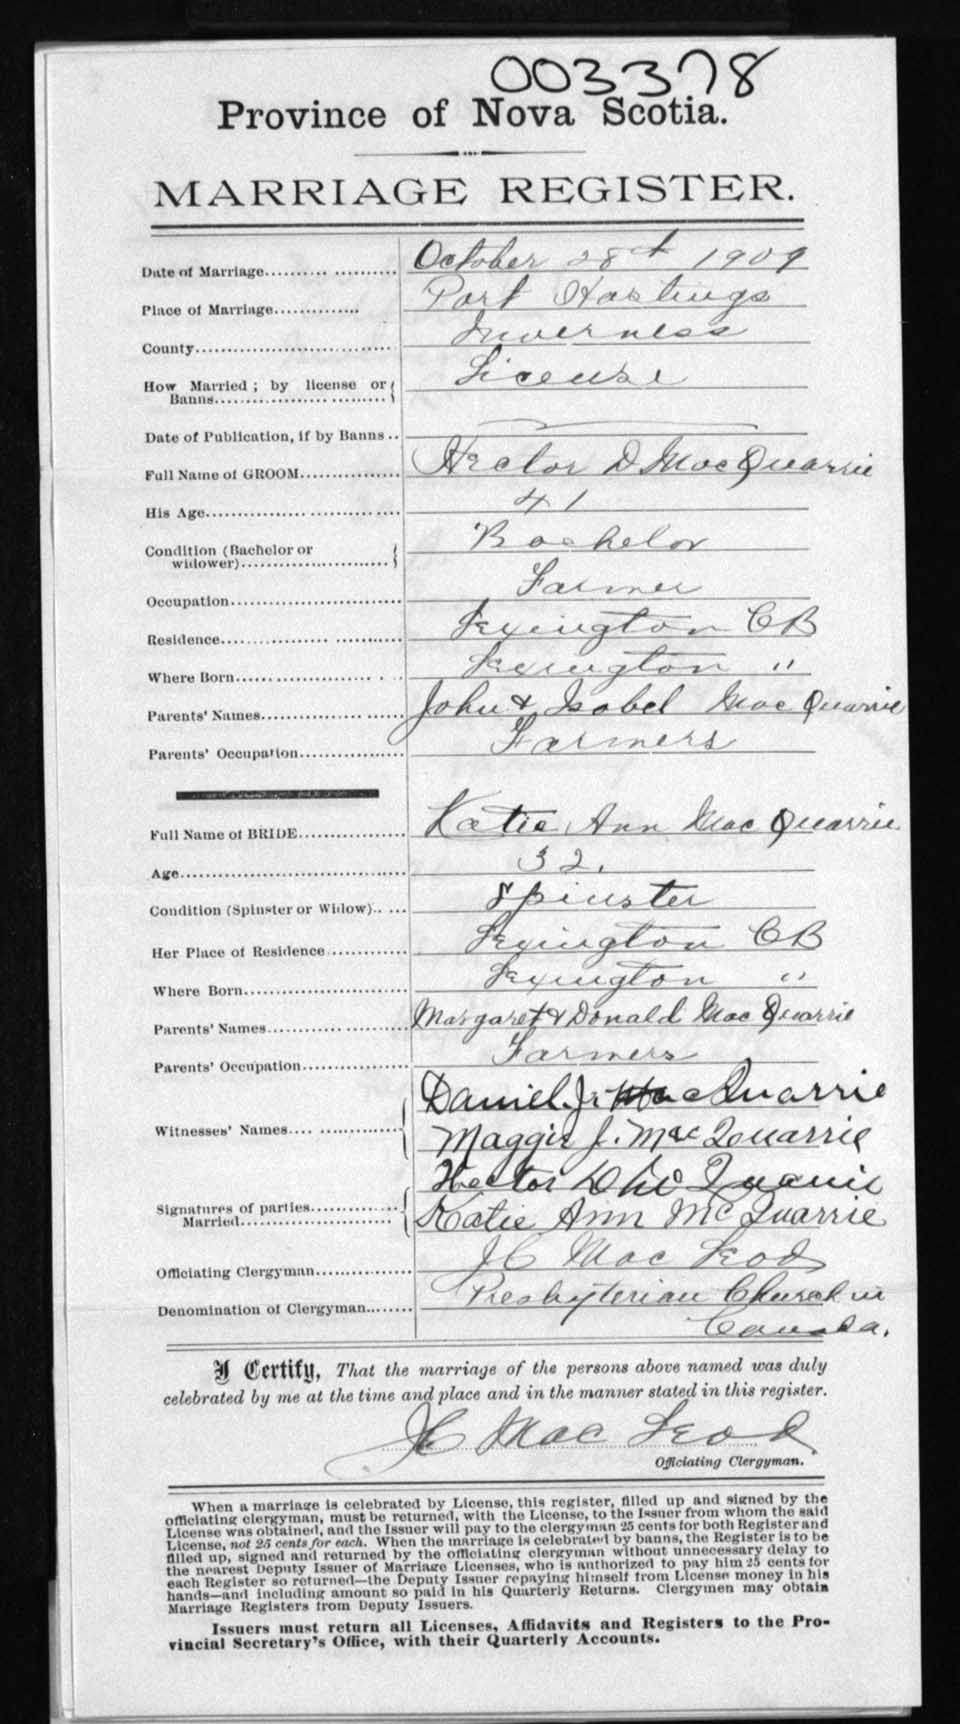 003378
Province of Nova Scotia.
MARRIAGE REGISTER.
Date of Marriage.................. October 28th 1909
Place of Marriage............. Port Hastings
County.................................. Inverness
How Married ; by license or License
Banns.............................
Date of Publication, if by Banns ..
Full Name of GROOM............... Hector D MacQuarrie
His Age............................. 41
Condition (Bachelor or Bachelor
widower)..........................
Occupation.......................... Farmer
Residence........................... Lexington CB
Where Born........................ Lexington "
Parents' Names..................... John & Isobel MacQuarrie
Parents' Occupation............... Farmers
Full Name of BRIDE............... Katie Ann MacQuarrie
Age.................................... 32.
Condition (Spinster or Widow).. ... Spinster
Her Place of Residence ........... Lexington CB
Where Born........................ Lexington "
Parents' Names..................... Margaret & Donald MacQuarrie
Parents' Occupation............... Farmers
Daniel. J. MacQuarrie
Witnesses' Names.... ............. Maggie J. MacQuarrie
Hector D McQuarrie
Signatures of parties.............
Married.......................... Katie Ann McQuarrie
Officiating Clergyman............... JC MacLeod
Denomination of Clergyman........ Presbyterian Church in
Canada.
I Certify, That the marriage of the persons above named was duly
celebrated by me at the time and place and in the manner stated in this register.
JC MacLeod
Officiating Clergyman.
When a marriage is celebrated by License, this register, filled up and signed by the
officiating clergyman, must be returned, with the License, to the Issuer from whom the said
License was obtained, and the Issuer will pay to the clergyman 25 cents for both Register and
License, not 25 cents for each. When the marriage is celebrated by banns, the Register is to be
filled up, signed and returned by the officiating clergyman without unnecessary delay to
the nearest Deputy Issuer of Marriage Licenses, who is authorized to pay him 25 cents for
each Register so returned—the Deputy Issuer repaying himself from License money in his
hands—and including amount so paid in his Quarterly Returns. Clergymen may obtain
Marriage Registers from Deputy Issuers.
Issuers must return all Licenses, Affidavits and Registers to the Pro-
vincial Secretary's Office, with their Quarterly Accounts.